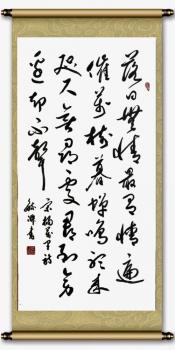 落日無情最有情遍
催萬樹暮蟬鳴聽來
咫尺無尋處尋到旁
邊却不聲
宋楊萬里詩
書